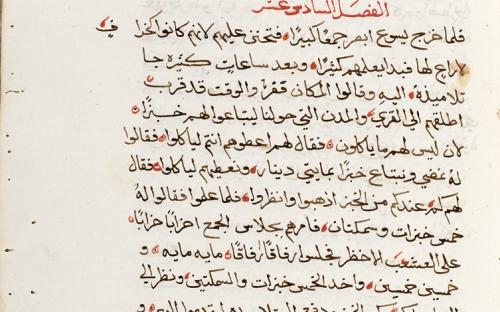 الفصل السادس عشر
فلما خرج يسوع ابصر جمعًا كبيرًا فتحنن عليهم لانهم كانوا كخراف
لا راع لها فبدا يعلمهم كثيرًا وبعد ساعات كثيرة جا
تلاميذه اليه وقالوا المكان قفر والوقت قد قرب
اطلقهم الى القرى والمدن التي حولنا ليبتاعوا لهم خبزًا
لان ليس لهم ما ياكلون فقال لهم اعطوهم انتم لياكلوا فقالوا
له نمضي ونبتاع خبزًا بمايتي دينار ونعطيهم لياكلوا فقال
لهم كم عندكم من الخبز اذهبوا وانظروا فلما علموا قالوا له
خمس خبزات وسمكتان فامرهم بجلاس الجمع احزابًا احزابًا
على العشب الاخضر فجلسوا رفاقًا رفاقًا مايه مايه و
خمسين خمسين واخد الخمس خبزات والسمكتين ونظر الى